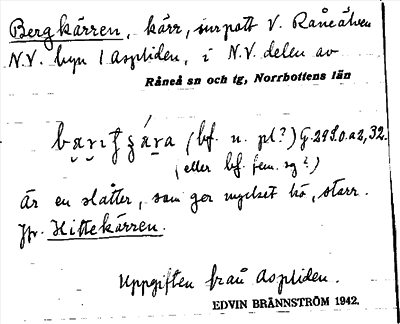 Bergkärren, kärr, inrpått V. Råneälven
N.V. byn 1 Aspliden, i N.V. delen av
Råneå sn och tg, Norrbottens län
(bf. n. pl?) G.29S.0.a2,32.
(eller bf. fem. sg?)
Är en slåtter, som ger mycket hö, starr.
Jfr. Hittekärren.
Uppgiften från Aspliden.
EDVIN BRÄNNSTRÖM 1942.